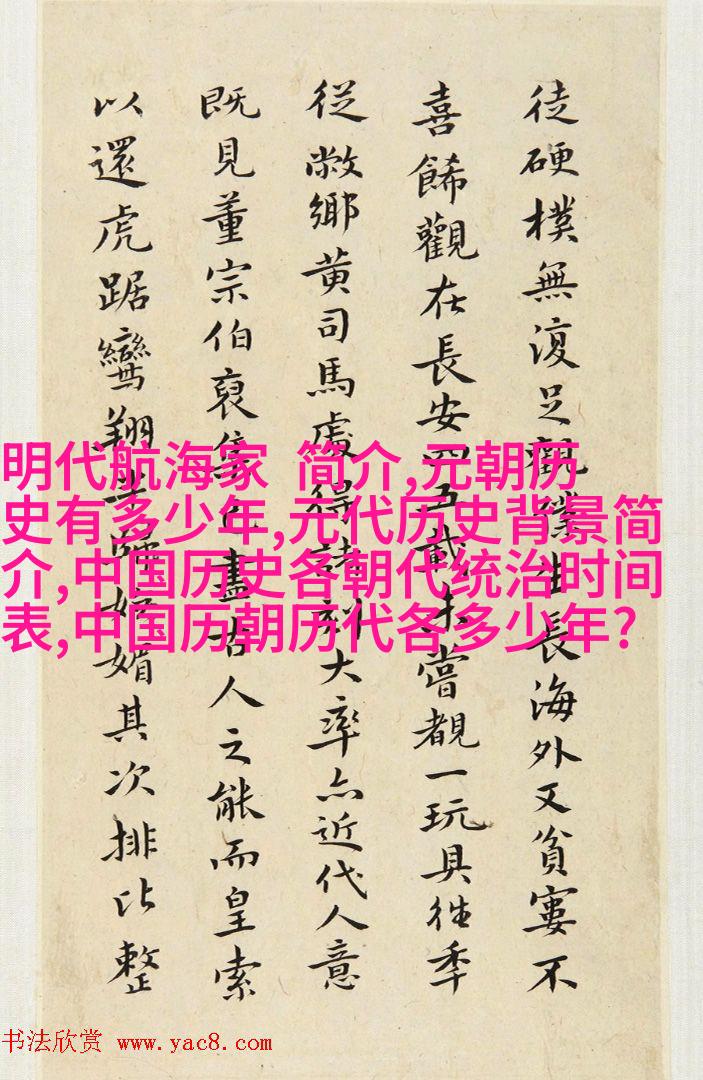 徒硬樸無復足觀生長海外又貧窶不
喜餙觀在長安四五載未嘗覩一玩具往年
從敝鄉黄司馬處得諸刻大率亦近代人意
既見董宗伯裒集盡古人之能而皇索
以還虎踞鸞翔媚其次排比整
明代航海家 简介,元朝历
史有多少年,元代历史背景简
介,中国历史各朝代统治时间
表,中国历朝历代各多少年?
书法欣赏 www.yac8.com